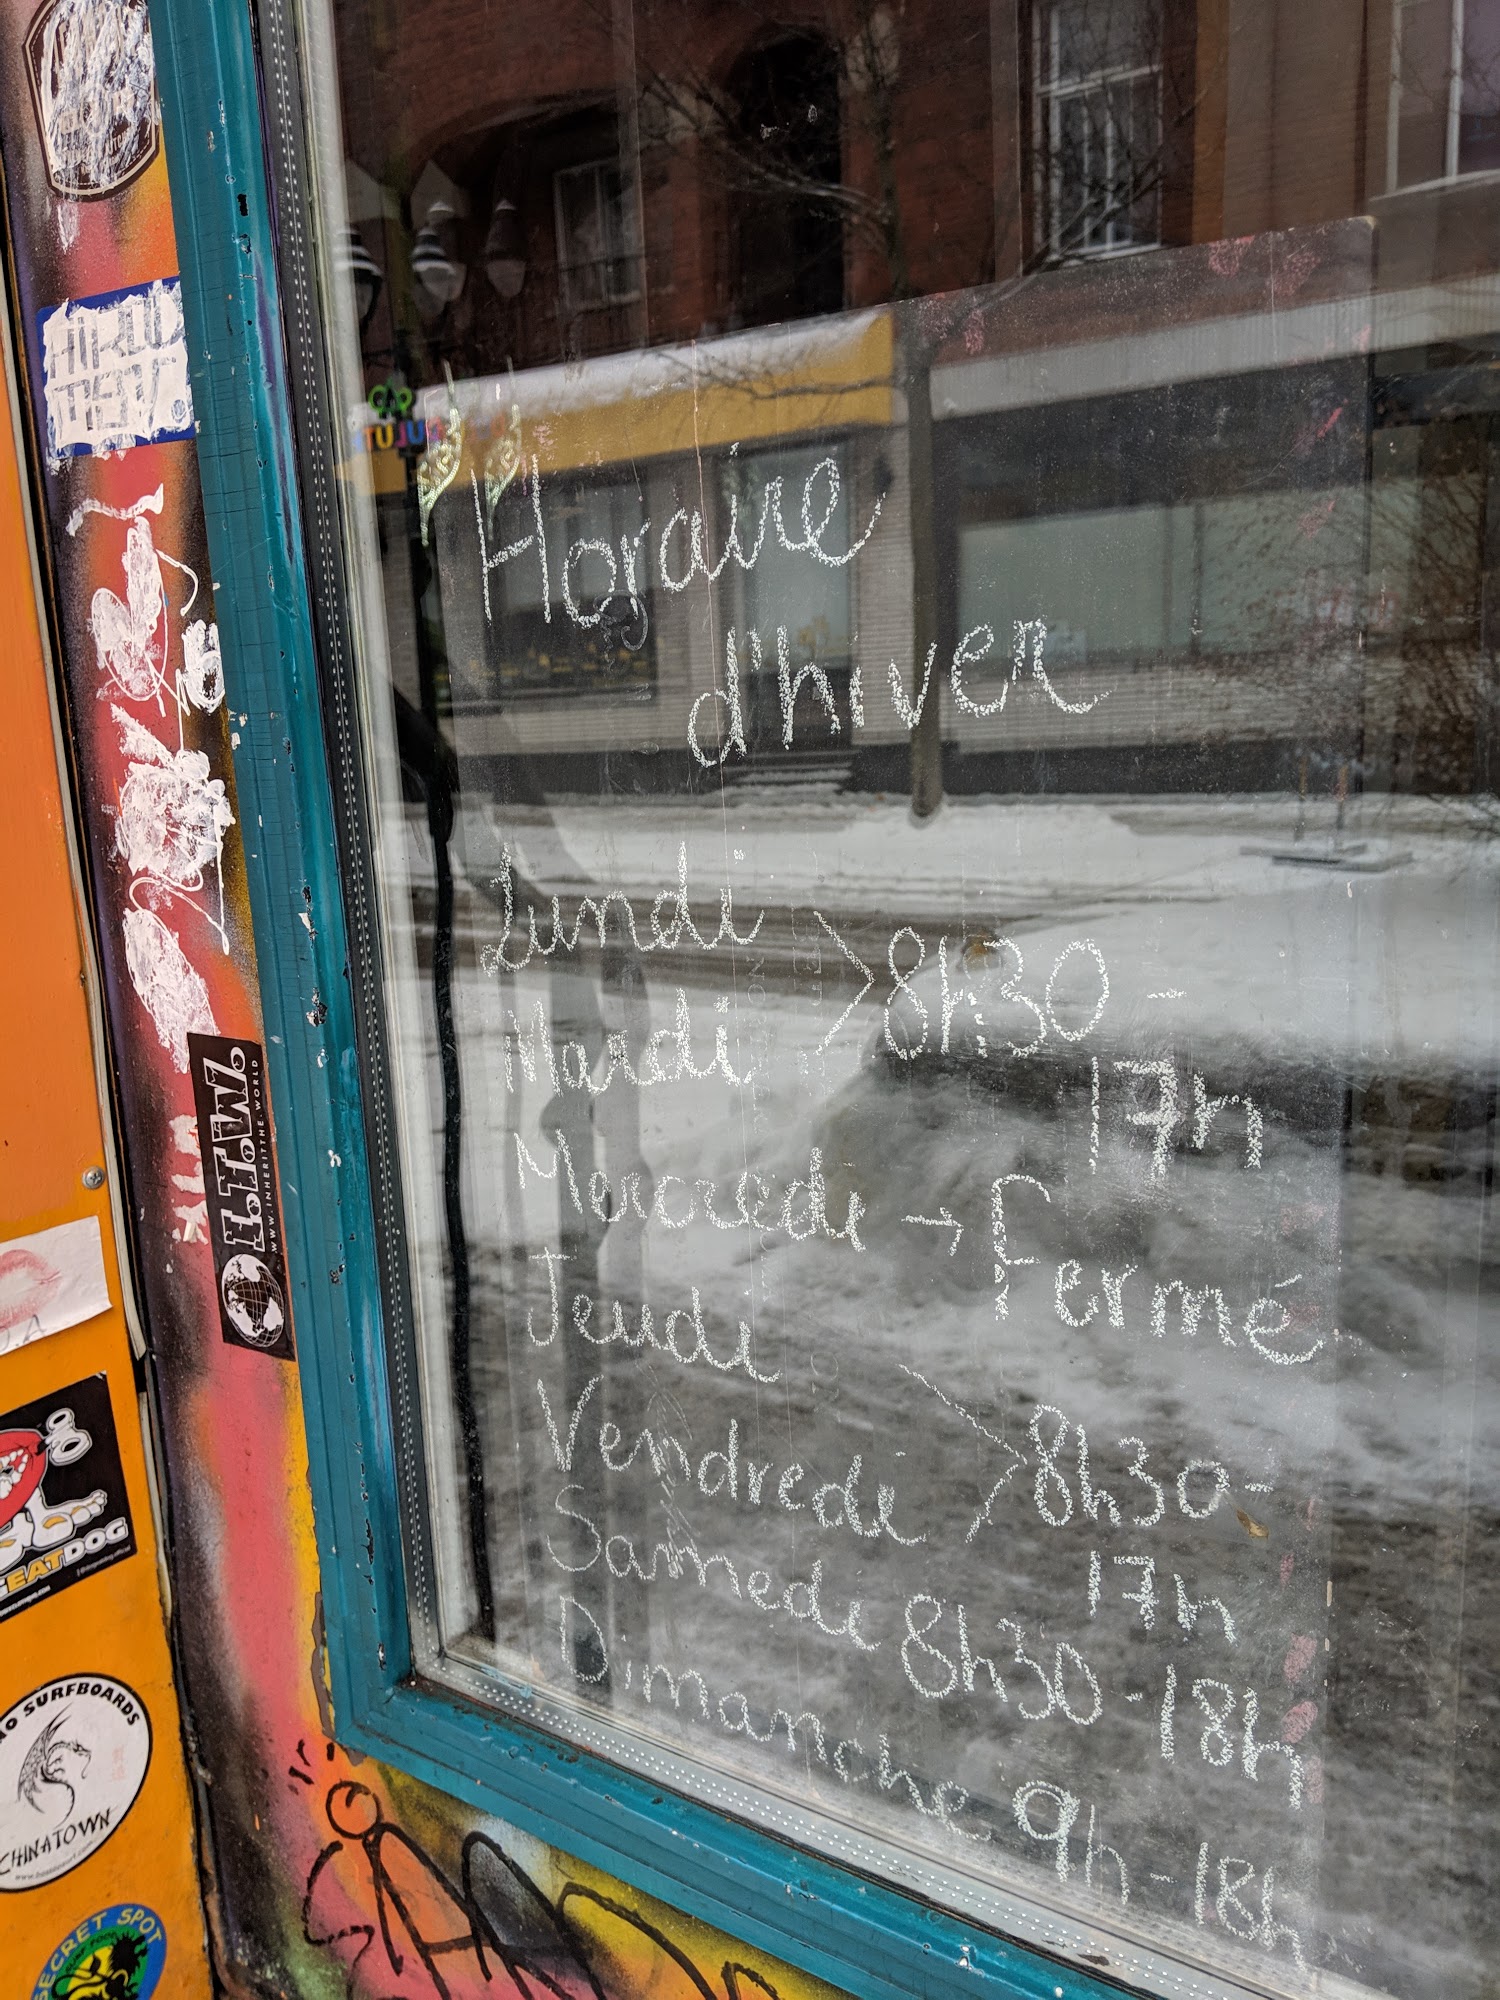 HIROO
Horaire
d'hiver
Lundi
Mardi
8h30 -
17h
Mercredi → fermé
Jeudi
Vendredi
8h30 -
17h
Samedi 8h30 - 18h
Dimanche 9h - 18h
WWW.INHERITTHE.WORLD
EATDOG
SURFBOARDS
CHINATOWN
SECRET SPOT